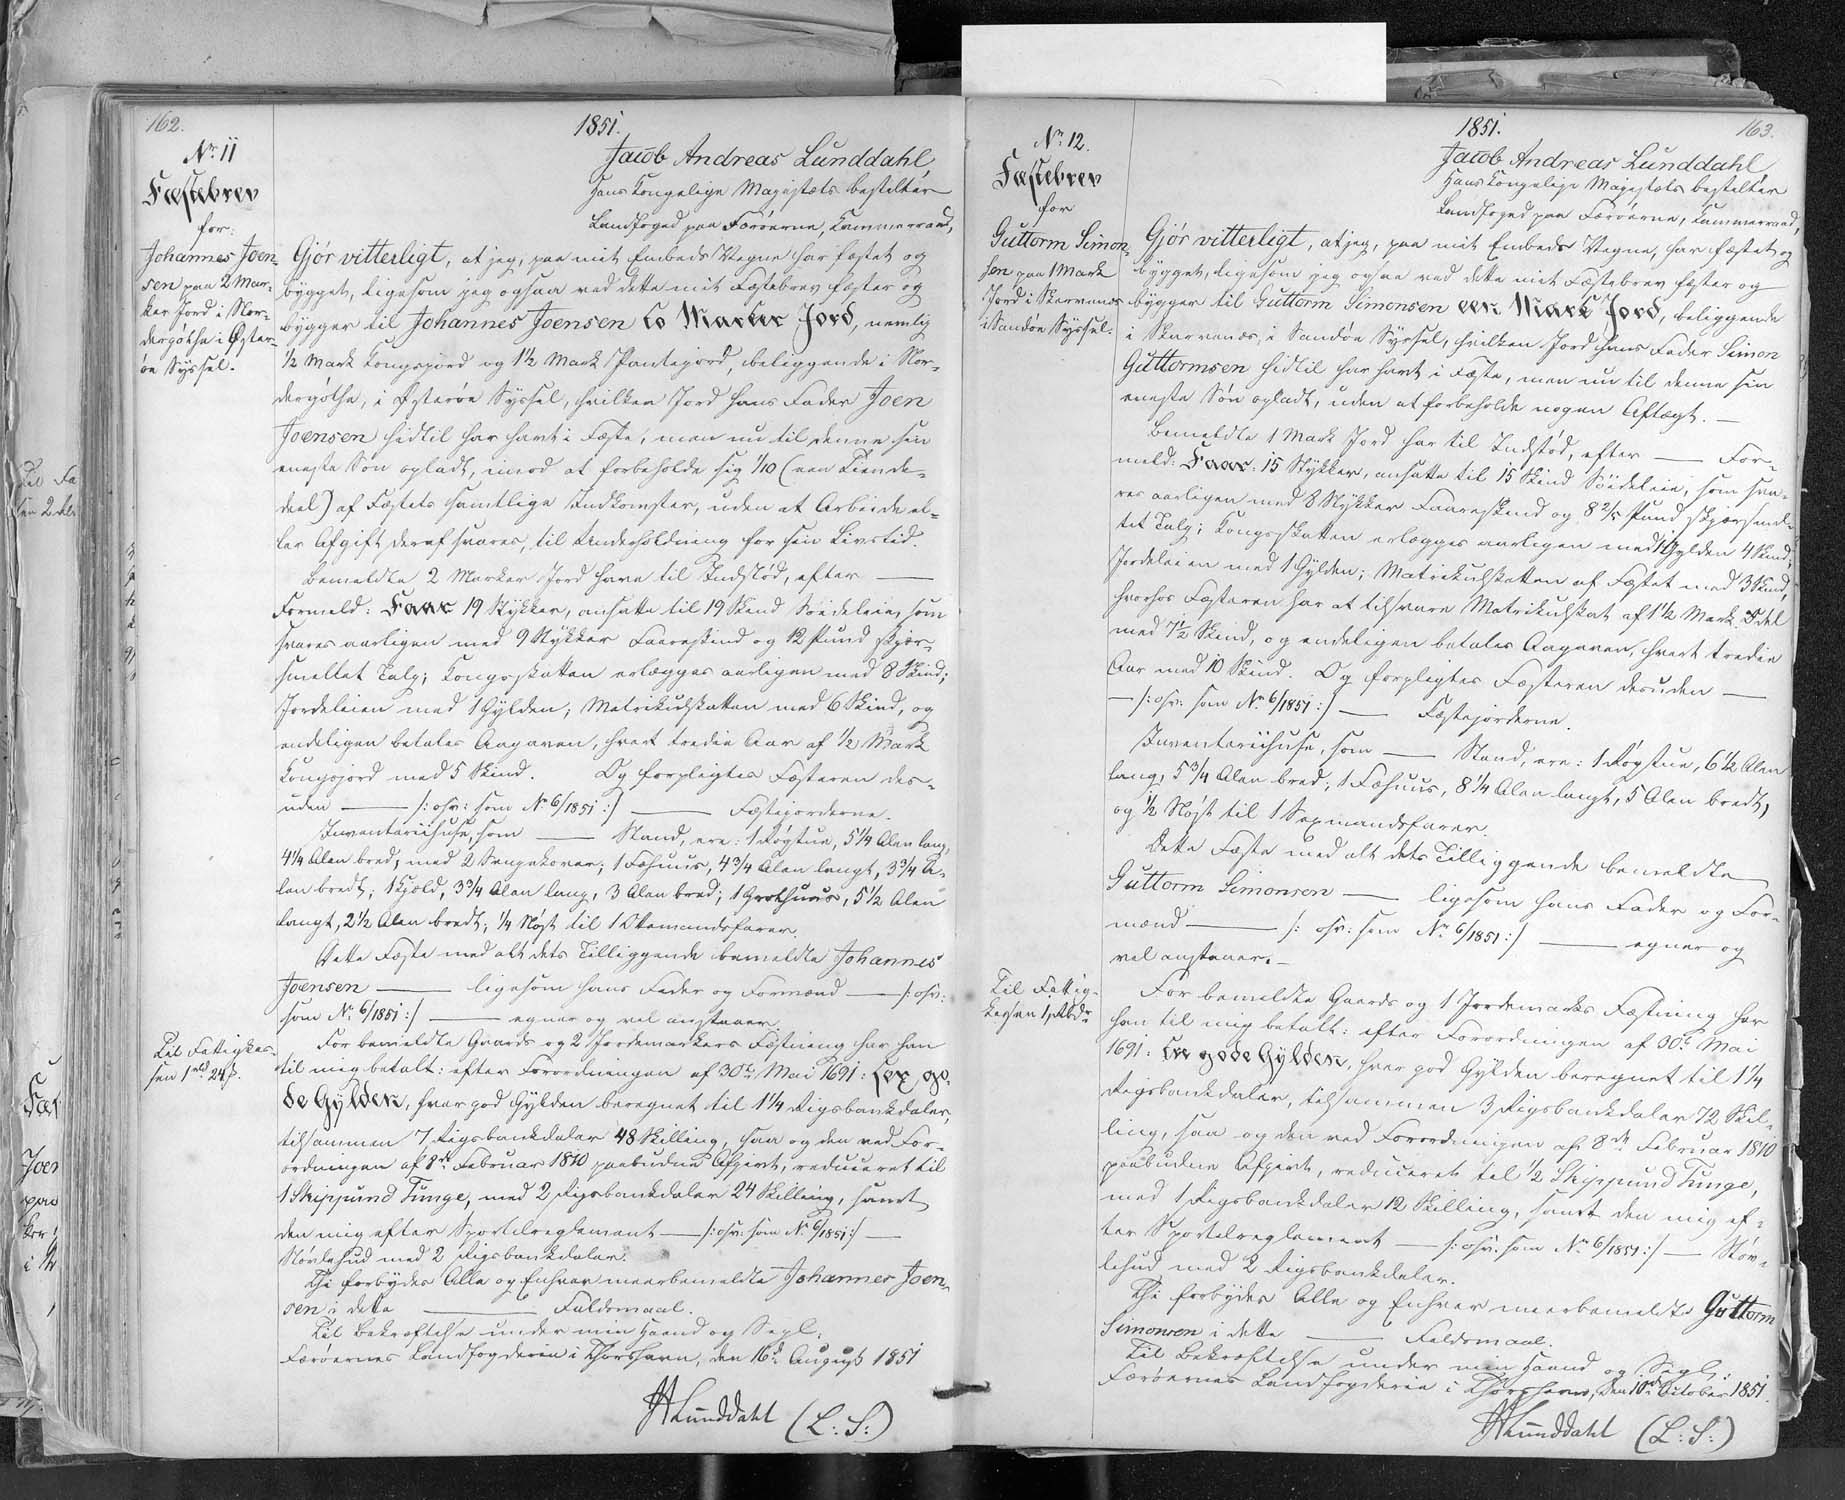 162.
1851.
Nr. 11
Fæstebrev
for:
Johannes Joen-
sen paa 2 Mar-
ker Jord i Nor-
dergöthe i Øster-
öe Syssel.
Jacob Andreas Lunddahl
Hans Kongelige Majestæts bestilter
Landfoged paa Færöerne, Kammerraad,
Gjör vitterligt, at jeg, paa mit Embeds Vegne har fæstet og
bygget, ligesom jeg ogsaa ved dette mit Fæstebrev fæster og
bygger til Johannes Joensen to Marker Jord, nemlig
½ Mark Kongsjord og 1½ Mark Pantejord, beliggende i Nor-
dergöthe, i Österöe Syssel, hvilken Jord hans Fader Joen
Joensen hidtil har havt i Fæste, men nu til denne sin
eneste Sön opladt, imod at forbeholde sig 1/10 (een Tiende-
deel) af Fæstets samtlige Indkomster, uden at Arbeide el-
ler Afgift deraf svares, til Underholdning for sin Livstid.
Bemeldte 2 Marker Jord have til Indstöd, efter —
Formeld: Faar 19 Stykker, ansatte til 19 Skind Söideleie, som
svares aarligen med 9 Stykker Faareskind og 12 Pund skjær-
smeltet Talg; Kongsskatten erlægges aarligen med 8 Skind;
Jordeleien med 1 Gylden; Matrikulskatten med 6 Skind, og
endeligen betales Aagaven, hvert tredie Aar af ½ Mark
Kongsjord med 5 Skind. Og forpligtes Fæsteren des-
uden — /: osv: som Nr. 6/1851 :/ — Fæstejorderne.
Inventariihuse, som — Stand, ere: 1 Rögstue, 5¼ Alen lang,
4¼ Alen bred, med 2 Sengekover; 1 Fæhuus, 4¾ Alen langt, 3¾ A-
len bredt; 1 Hjeld, 3¾ Alen lang, 3 Alen bred; 1 Grothuus, 5½ Alen
langt, 2½ Alen bredt; ¼ Nöst til 1 Ottemandsfarer.
Dette Fæste med alt dets Tilliggende bemeldte Johannes
Joensen — ligesom hans Fader og Formænd — /: osv:
som Nr. 6/1851 :/ — egner og vel anstaaer.
Til Fattigkas-
sen 1 rbd 24 s.
For bemeldte Gaards og 2 Jordemarkers Fæstning har han
til mig betalt: efter Forordningen af 30te Mai 1691: sex go-
de Gylden, hver god Gylden beregnet til 1¼ Rigsbankdaler,
tilsammen 7 Rigsbankdaler 48 Skilling, saa og den ved For-
ordningen af 8de Februar 1810 paabudne Afgivt, reduceret til
1 Skippund Tunge, med 2 Rigsbankdaler 24 Skilling, samt
den mig efter Sportelreglement — /: osv: som Nr. 6/1851 :/ —
Stövlehud med 2 Rigsbankdaler.
Thi forbydes Alle og Enhver meerbemeldte Johannes Joen-
sen i dette — Faldsmaal.
Til Bekræftelse under min Haand og Segl.
Færöernes Landfogderie i Thorshavn, den 16de August 1851
HLunddahl (L: S:)
1851.
163.
Nr. 12.
Fæstebrev
for
Guttorm Simon-
sen paa 1 Mark
Jord i Skarvenes
i Sandöe Syssel.
Jacob Andreas Lunddahl
Hans Kongelige Majestæts bestilter
Landfoged paa Færöerne, Kammerraad,
Gjör vitterligt, at jeg, paa mit Embeds Vegne, har fæstet og
bygget, ligesom jeg ogsaa ved dette mit Fæstebrev fæster og
bygger til Guttorm Simonsen een Mark Jord, beliggende
i Skarvenes, i Sandöe Syssel, hvilken Jord hans Fader Simon
Guttormsen hidtil har havt i Fæste, men nu til denne sin
eneste Sön opladt, uden at forbeholde nogen Aftægt. —
Bemeldte 1 Mark Jord har til Indstöd, efter — For-
meld: Faar: 15 Stykker, ansatte til 15 Skind Söideleie, som sva-
res aarligen med 8 Stykker Faareskind og 8 2/5 Pund skjærsmel-
tet Talg; Kongsskatten erlægges aarligen med 1 Gylden 4 Skind;
Jordeleien med 1 Gylden; Matrikulskatten af Fæstet med 3 Skind,
hvorhos Fæsteren har at tilsvare Matrikulskat af 1½ Mark Odel
med 7½ Skind, og endeligen betales Aagaven, hvert tredie
Aar med 10 Skind. Og forpligtes Fæsteren desuden —
— /: osv: som Nr. 6/1851 :/ — Fæstejorderne.
Inventariihuse, som — Stand, ere: 1 Rögstue, 6½ Alen
lang, 5¾ Alen bred; 1 Fæhuus, 8¼ Alen langt, 5 Alen bredt,
og ½ Nöst til 1 Sexmandsfarer.
Dette Fæste med alt dets Tilliggende bemeldte
Guttorm Simonsen — ligesom hans Fader og For-
mænd — /: osv: som Nr. 6/1851 :/ — egner og
vel anstaaer. —
Til Fattig-
kassen 1 Rbd.
For bemeldte Gaards og 1 Jordemarks Fæstning har
han til mig betalt: efter Forordningen af 30te Mai
1691: tre gode Gylden, hver god Gylden beregnet til 1¼
Rigsbankdaler, tilsammen 3 Rigsbankdaler 72 Skil-
ling, saa og den ved Forordningen af 8de Februar 1810
paabudne Afgivt, reduceret til ½ Skippund Tunge,
med 1 Rigsbankdaler 12 Skilling, samt den mig ef-
ter Sportelreglement — /: osv: som Nr. 6/1851 :/ — Stöv-
lehud med 2 Rigsbankdaler.
Thi forbydes Alle og Enhver meerbemeldte Guttorm
Simonsen i dette — Faldsmaal.
Til Bekræftelse under min Haand og Segl.
Færöernes Landfogderie i Thorshavn, den 10de October 1851.
HLunddahl (L: S:)